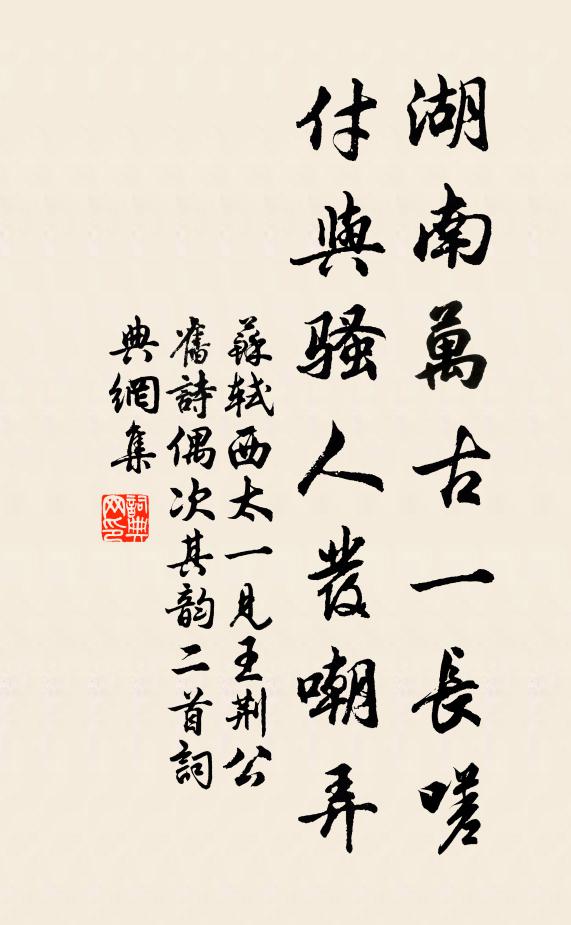 湖南萬古一長嗟
付與騷人發嘲弄
蘇軾西太一見王荆公
舊詩偶次其韵二首詞
典網集
詞典
网印